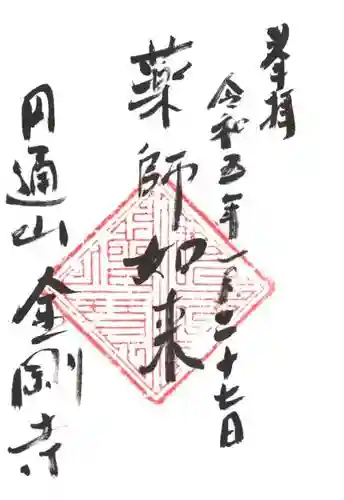 奉拝
令和五年一月二十七日
薬師如来
円通山金剛寺